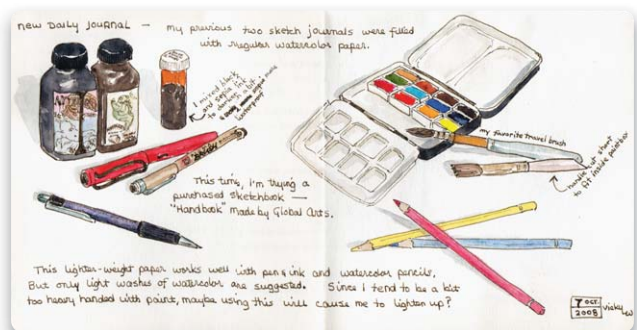 new DAILY JOURNAL — my previous two sketch journals were filled
with regular watercolor paper.
I mixed black
and sepia ink
to darken a bit
waterproof
my favorite travel brush
handle cut short
to fit inside paintbox
This time, I'm trying a
purchased sketchbook —
"Handbook" made by Global Arts.
This lighter-weight paper works well with pen & ink and watercolor pencils.
But only light washes of watercolor are suggested. Since I tend to be a bit
too heavy handed with paint, maybe using this will cause me to lighten up?
7 OCT.
2008
vicky